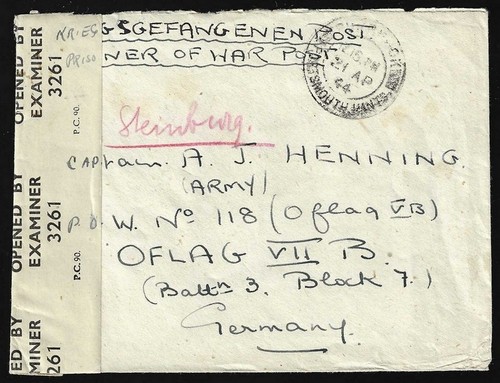 KRIEGSGEFANGENEN POST
PRISONER OF WAR POST
12.15 PM
21 AP
44
Steinburg.
CAPtain A. J. HENNING.
(ARMY)
P.O.W. Nº 118 (Oflag VB)
OFLAG VII B.
(Battn 3. Block 7.)
Germany.
OPENED BY
EXAMINER 3261
P.C. 90.
OPENED BY
EXAMINER 3261
P.C. 90.
ED BY
MINER 261